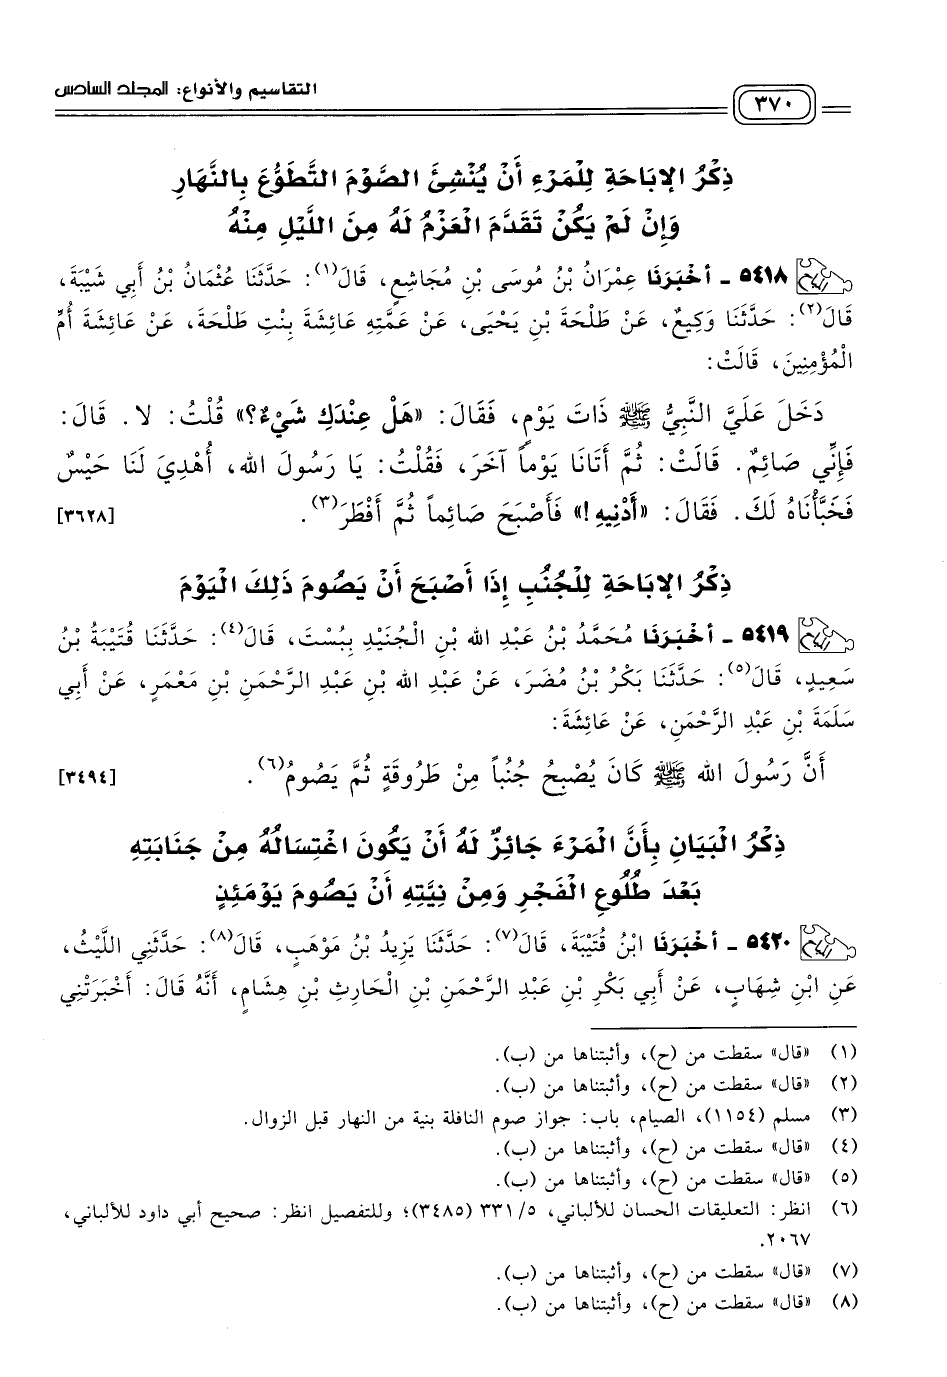 التقاسيم والأنواع: المجلد السادس
٣٧٠
ذِكْرُ الإبَاحَةِ لِلْمَرْءِ أَنْ يُنْشِئَ الصَّوْمَ التَّطَوُّعَ بِالنَّهَارِ
وَإِنْ لَمْ يَكُنْ تَقَدَّمَ الْعَزْمُ لَهُ مِنَ اللَّيْلِ مِنْهُ
٥٤١٨ - أخْبَرَنَا عِمْرَانُ بْنُ مُوسَى بْنِ مُجَاشِعٍ، قَالَ(١): حَدَّثَنَا عُثْمَانُ بْنُ أَبِي شَيْبَةَ،
قَالَ(٢): حَدَّثَنَا وَكِيعٌ، عَنْ طَلْحَةَ بْنِ يَحْيَى، عَنْ عَمَّتِهِ عَائِشَةَ بِنْتِ طَلْحَةَ، عَنْ عَائِشَةَ أُمِّ
الْمُؤْمِنِينَ، قَالَتْ:
دَخَلَ عَلَيَّ النَّبِيُّ ﷺ ذَاتَ يَوْمٍ، فَقَالَ: «هَلْ عِنْدَكِ شَيْءٌ؟» قُلْتُ: لا. قَالَ:
فَإِنِّي صَائِمٌ. قَالَتْ: ثُمَّ أَتَانَا يَوْماً آخَرَ، فَقُلْتُ: يَا رَسُولَ الله، أُهْدِيَ لَنَا حَيْسٌ
فَخَبَّأْنَاهُ لَكَ. فَقَالَ: «أَدْنِيهِ!» فَأَصْبَحَ صَائِماً ثُمَّ أَفْطَرَ(٣). [٣٦٢٨]
ذِكْرُ الإبَاحَةِ لِلْجُنُبِ إِذَا أَصْبَحَ أَنْ يَصُومَ ذَلِكَ الْيَوْمَ
٥٤١٩ - أخْبَرَنَا مُحَمَّدُ بْنُ عَبْدِ الله بْنِ الْجُنَيْدِ بِبُسْتَ، قَالَ(٤): حَدَّثَنَا قُتَيْبَةُ بْنُ
سَعِيدٍ، قَالَ(٥): حَدَّثَنَا بَكْرُ بْنُ مُضَرَ، عَنْ عَبْدِ الله بْنِ عَبْدِ الرَّحْمَنِ بْنِ مَعْمَرٍ، عَنْ أَبِي
سَلَمَةَ بْنِ عَبْدِ الرَّحْمَنِ، عَنْ عَائِشَةَ:
أَنَّ رَسُولَ الله ﷺ كَانَ يُصْبِحُ جُنُباً مِنْ طَرُوقَةٍ ثُمَّ يَصُومُ(٦). [٣٤٩٤]
ذِكْرُ الْبَيَانِ بِأَنَّ الْمَرْءَ جَائِزٌ لَهُ أَنْ يَكُونَ اغْتِسَالُهُ مِنْ جَنَابَتِهِ
بَعْدَ طُلُوعِ الْفَجْرِ وَمِنْ نِيَّتِهِ أَنْ يَصُومَ يَوْمَئِذٍ
٥٤٢٠ - أخْبَرَنَا ابْنُ قُتَيْبَةَ، قَالَ(٧): حَدَّثَنَا يَزِيدُ بْنُ مَوْهَبٍ، قَالَ(٨): حَدَّثَنِي اللَّيْثُ،
عَنِ ابْنِ شِهَابٍ، عَنْ أَبِي بَكْرِ بْنِ عَبْدِ الرَّحْمَنِ بْنِ الْحَارِثِ بْنِ هِشَامٍ، أَنَّهُ قَالَ: أَخْبَرَتْنِي
(١) «قال» سقطت من (ح)، وأثبتناها من (ب).
(٢) «قال» سقطت من (ح)، وأثبتناها من (ب).
(٣) مسلم (١١٥٤)، الصيام، باب: جواز صوم النافلة بنية من النهار قبل الزوال.
(٤) «قال» سقطت من (ح)، وأثبتناها من (ب).
(٥) «قال» سقطت من (ح)، وأثبتناها من (ب).
(٦) انظر: التعليقات الحسان للألباني، ٥/ ٣٣١ (٣٤٨٥)؛ وللتفصيل انظر: صحيح أبي داود للألباني،
٢٠٦٧.
(٧) «قال» سقطت من (ح)، وأثبتناها من (ب).
(٨) «قال» سقطت من (ح)، وأثبتناها من (ب).